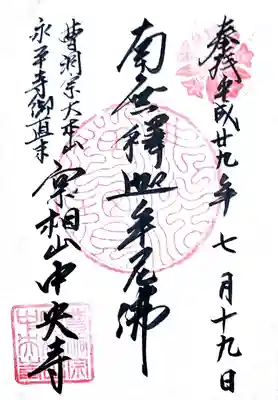 奉拝 平成廿九年 七月十九日
南無釋迦牟尼佛
曹洞宗大本山
永平寺御直末
實相山中央寺